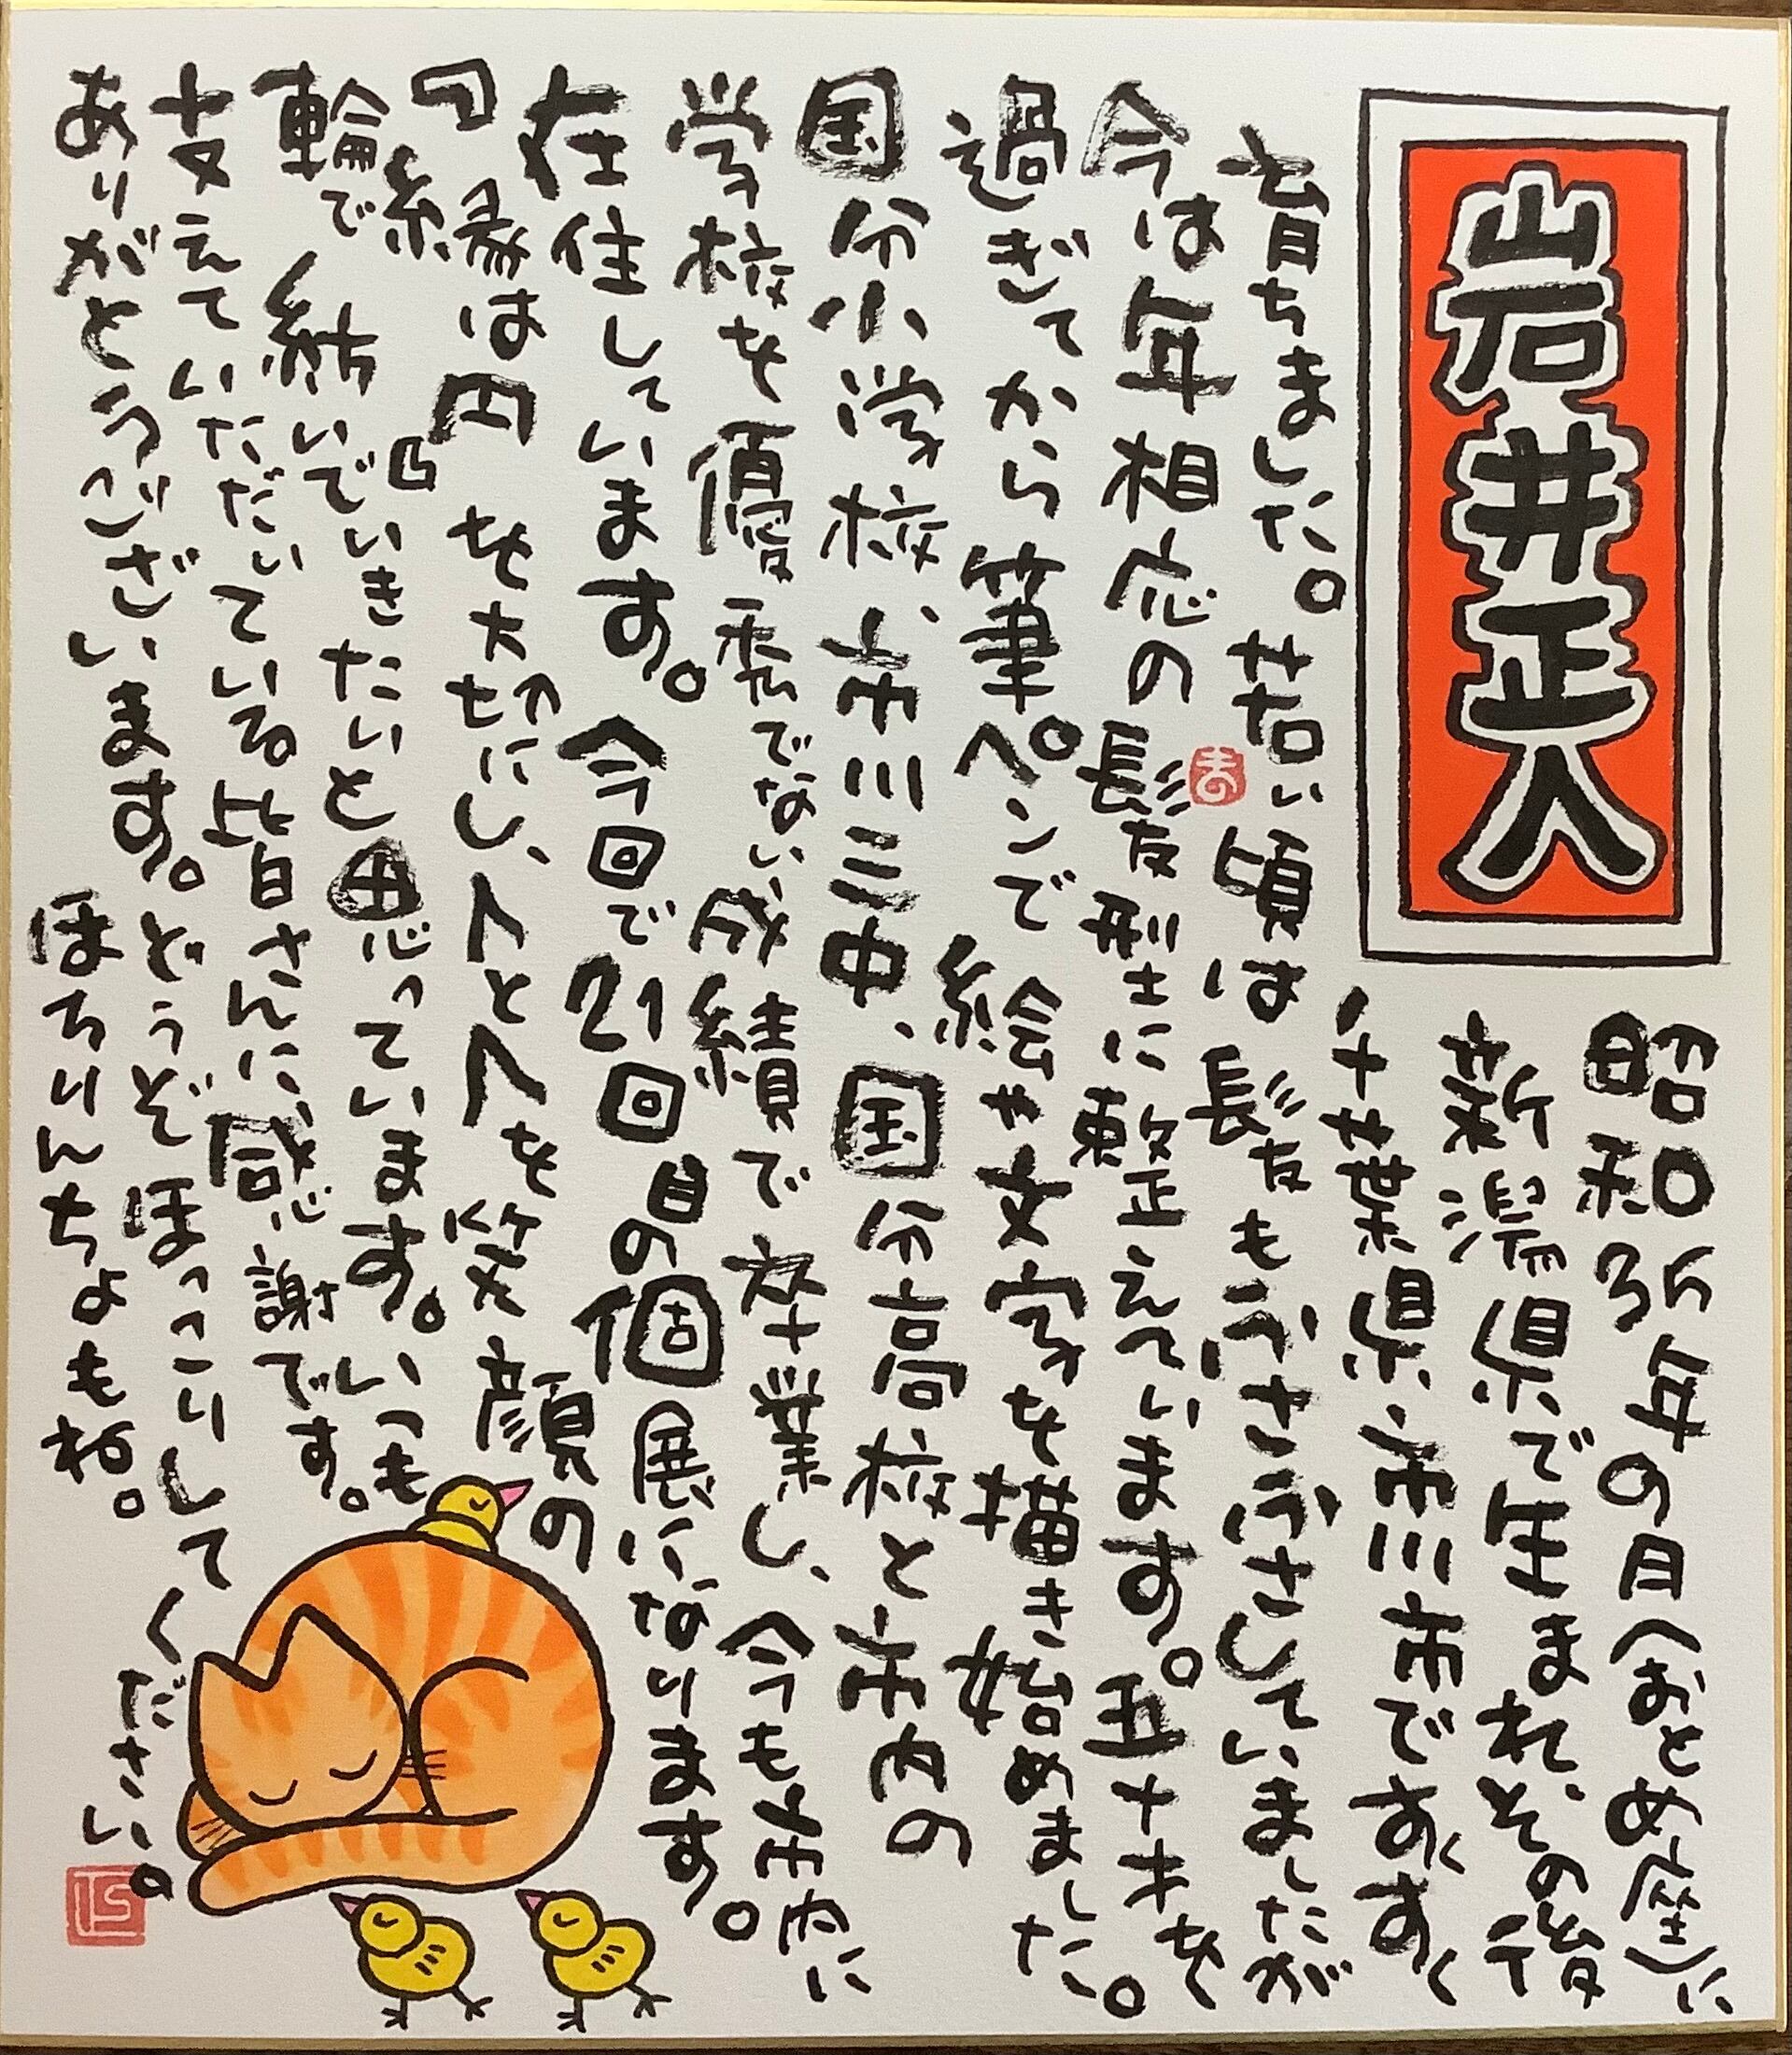 岩井正人
昭和35年の月(おとめ座)に
新潟県で生まれ、その後
千葉県、市川市ですくすく
育ちました。若い頃は髪もふさふさしていましたが
今は年相応の髪型に整えています。五十才を
過ぎてから筆ペンで絵や文字を描き始めました。
国分小学校、市川三中、国分高校と市内の
学校を優秀でない成績で卒業し、今も市内に
在住しています。今回で21回目の個展になります。
『縁は円』を大切にし、人と人を笑顔の
輪で紡いでいきたいと思っています。いつも
支えていただいている皆さんに、感謝です。
ありがとうございます。どうぞほっこりして
ください。
ほちりんちょもね。